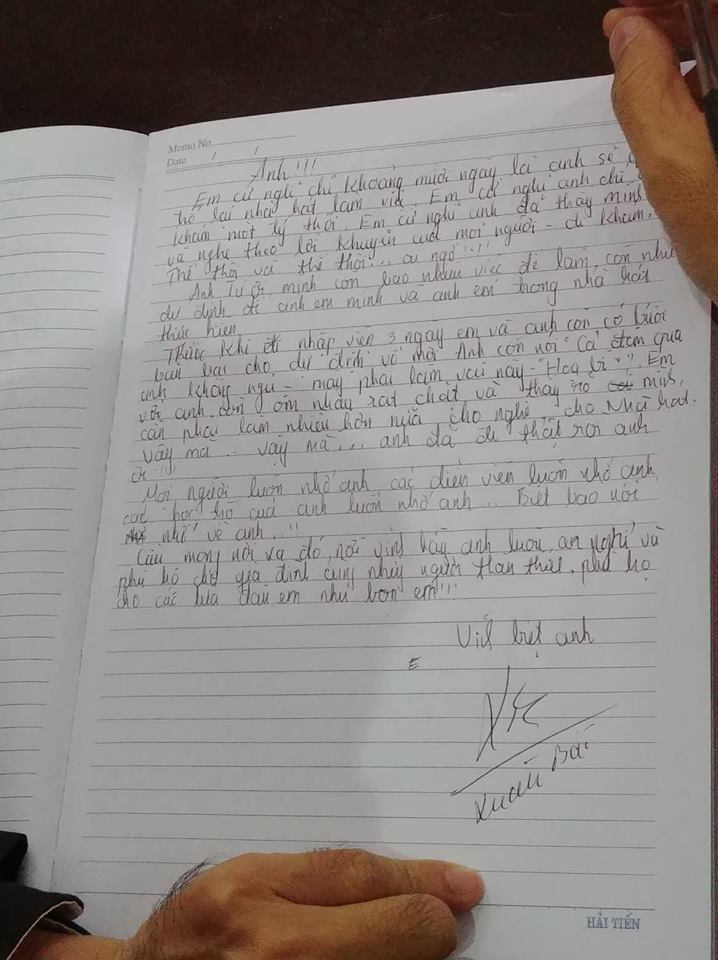 Memo No.
Date / /
Anh!!!
Em cứ nghĩ chỉ khoảng mười ngày là anh sẽ
trở lại nhà hát làm việc. Em cứ nghĩ anh chỉ
khám một tý thôi. Em cứ nghĩ anh đã thấy mình
và nghe theo lời khuyên của mọi người - đi khám.
Thế thôi và thế thôi... ai ngờ!!!!
Anh Tư ơi, mình còn bao nhiêu việc để làm, còn
dự định để anh em mình và anh em trong nhà hát
thực hiện.
Trước khi đi nhập viện 3 ngày em và anh còn có buổi
bàn bạc cho dự định vở mới. Anh còn nói "Cả đêm qua
anh không ngủ - mày phải làm vai này - "Hoa
với anh còn ôm nhau rất chặt và mình,
cần phải làm nhiều hơn nữa cho nghề cho Nhà hát.
Vậy mà.. vậy mà... anh đã đi thật rồi anh
ơi!!!
Mọi người luôn nhớ anh, các diễn viên luôn nhớ anh,
các học trò của anh luôn nhớ anh... Biết bao nỗi
nhớ về anh..!!
Cầu mong nơi xa đó, nơi vĩnh hằng anh luôn an nghỉ và
phù hộ cho gia đình cùng những người thân thiết, phù hộ
cho các lứa đàn em như bọn em!!!
Vĩnh biệt anh
E
Xuân Bắc
HẢI TIẾN